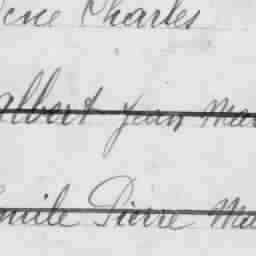 ène Charles
Albert Jean Mar
Emile Pierre Ma